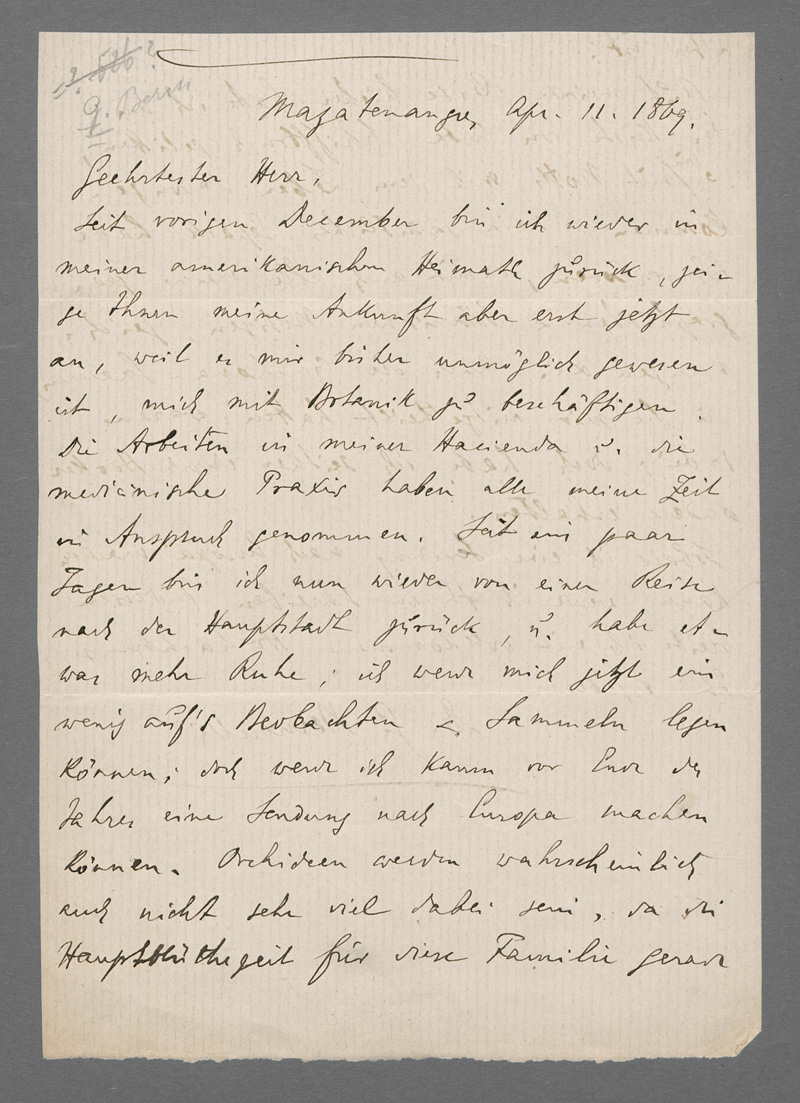 Mazatenango, Apr. 11. 1869.
Geehrtester Herr,
Seit vorigen December bin ich wieder in
meiner amerikanischen Heimath zurück, zei-
ge Ihnen meine Ankunft aber erst jetzt
an, weil es mir bisher unmöglich gewesen
ist, mich mit Botanik zu beschäftigen.
Die Arbeiten in meiner Hacienda u. die
medicinische Praxis haben alle meine Zeit
in Anspruch genommen. Seit ein paar
Tagen bin ich nun wieder von einer Reise
nach der Hauptstadt zurück, u. habe et-
was mehr Ruhe; ich werde mich jetzt ein
wenig auf's Beobachten u. Sammeln legen
können; doch werde ich kaum vor Ende des
Jahres eine Sendung nach Europa machen
können. Orchideen werden wahrscheinlich
auch nicht sehr viel dabei sein, da die
Hauptblüthezeit für diese Familie gerade